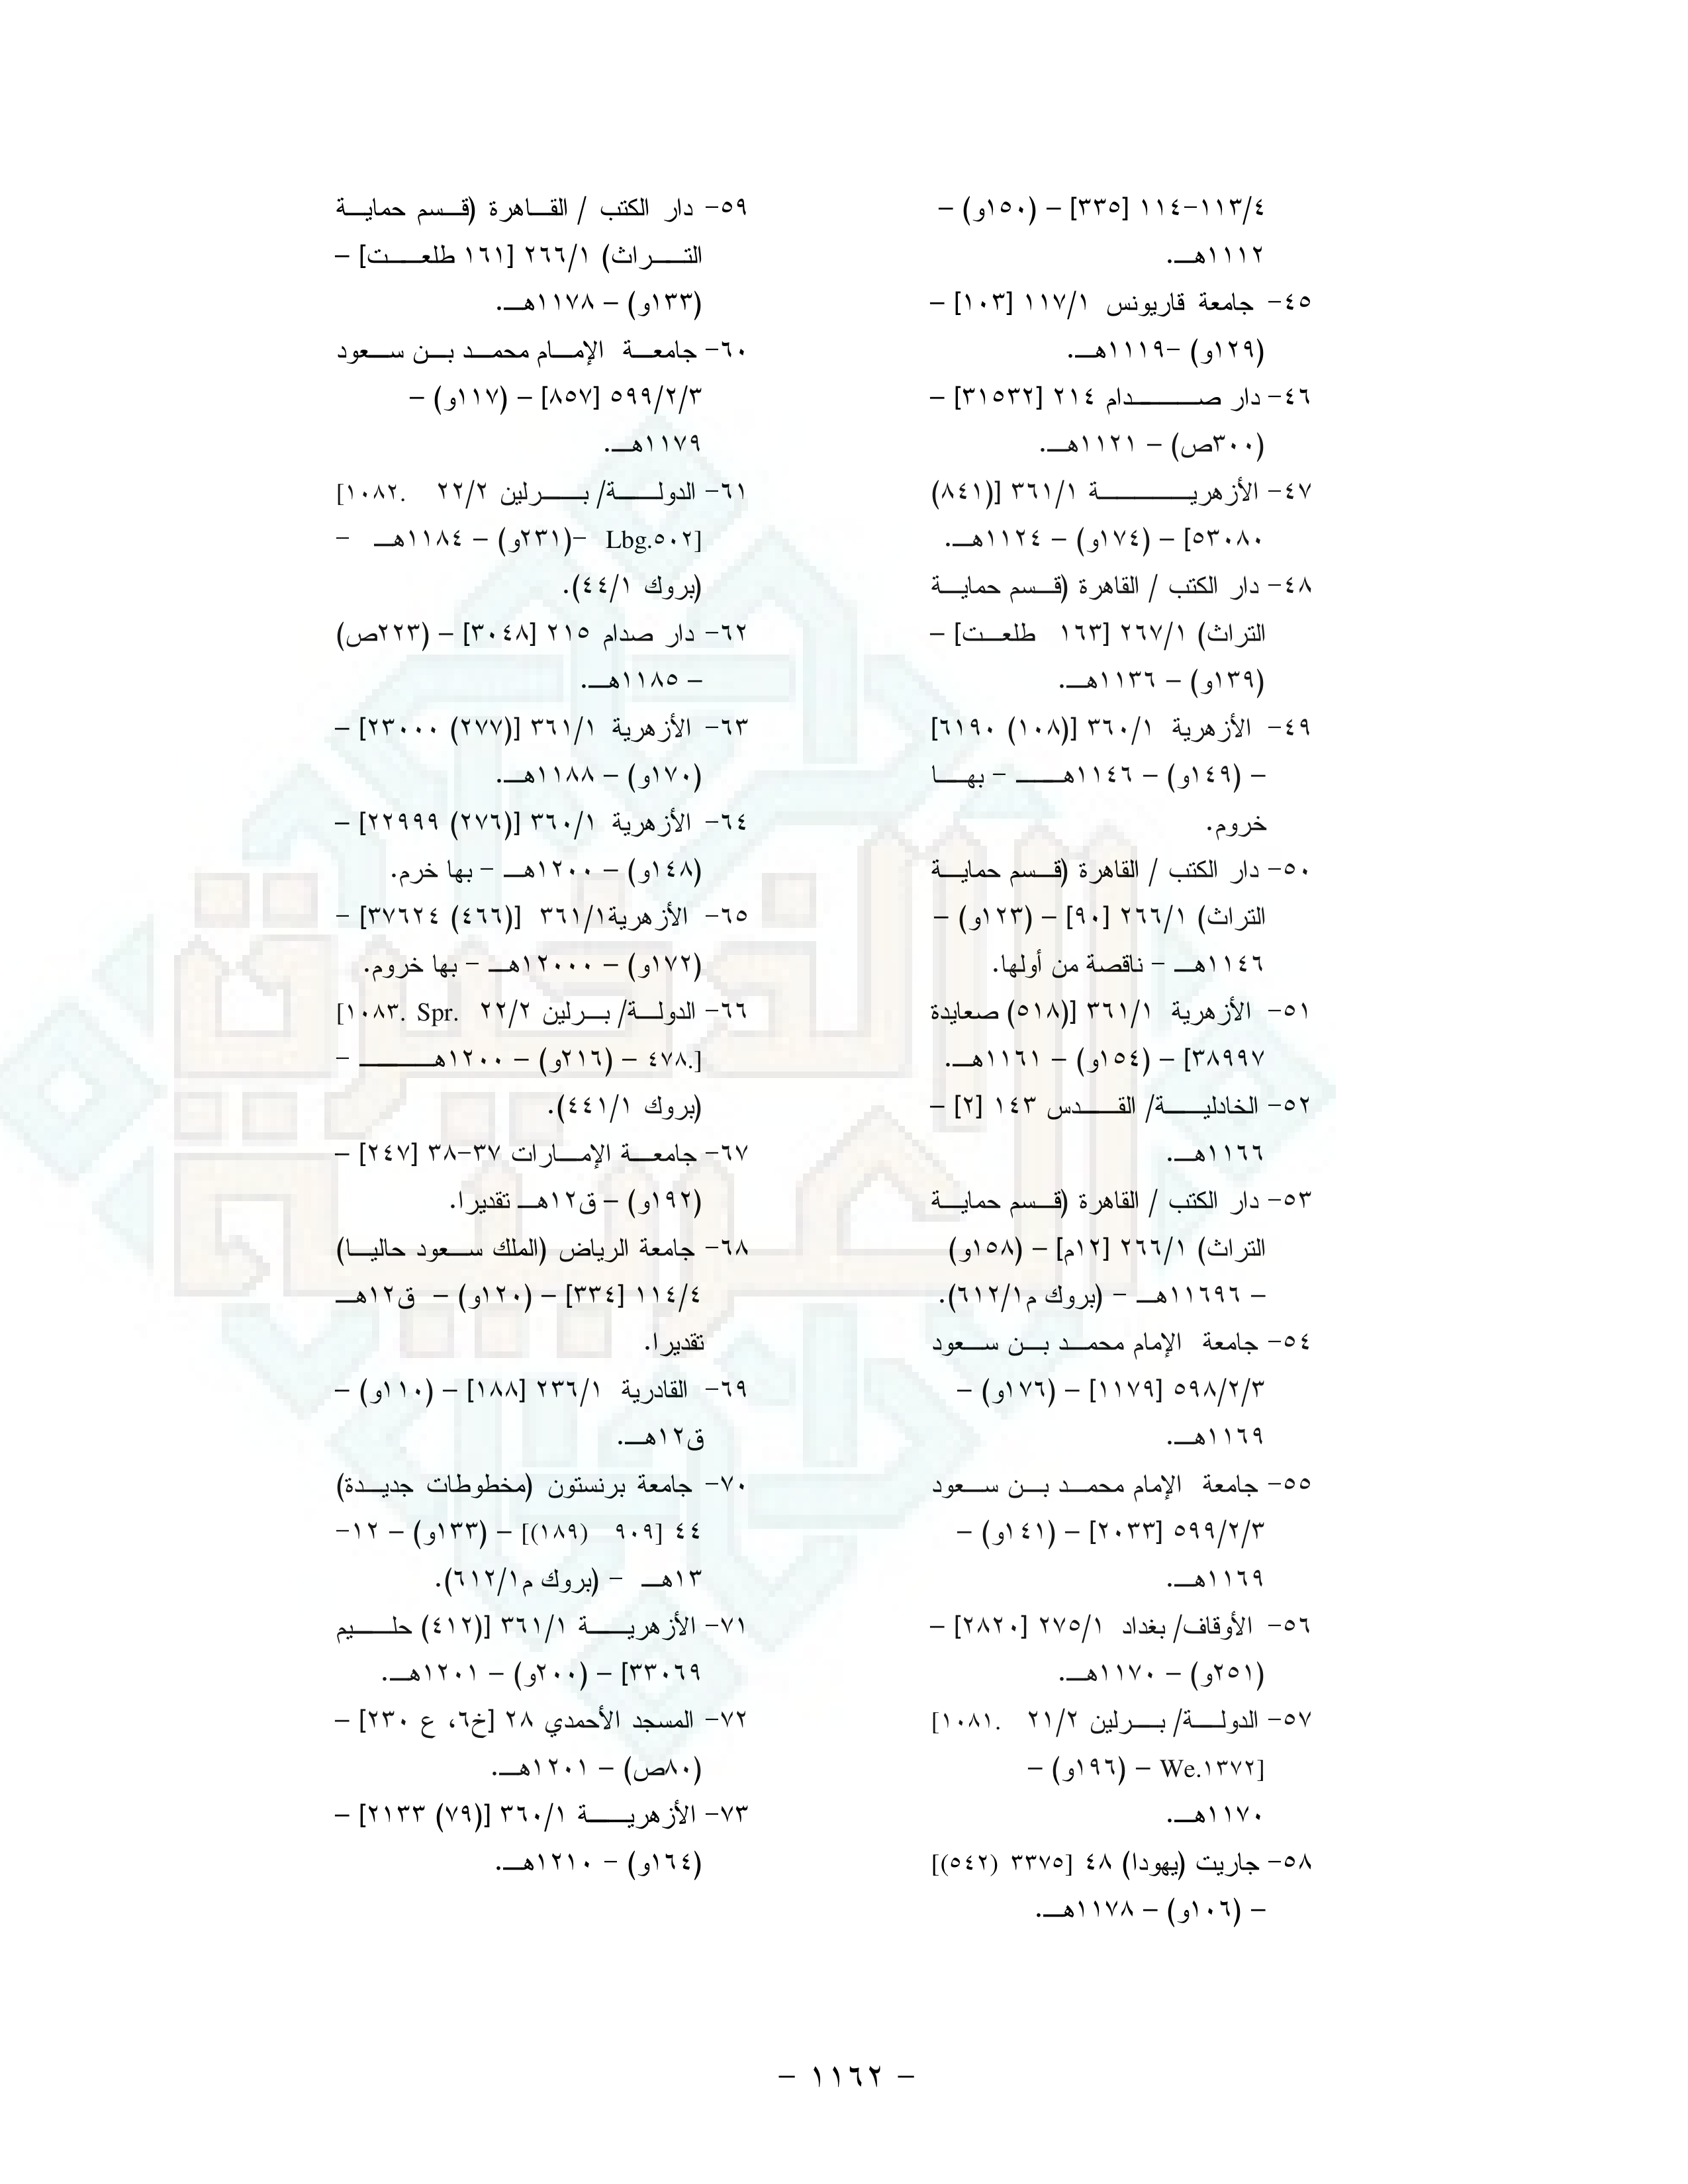 ٤/١١٣-١١٤ [٣٣٥] – (١٥٠و) –
١١١٢هـ.
٤٥- جامعة قاريونس ١/١١٧ [١٠٣] –
(١٢٩و) -١١١٩هـ.
٤٦- دار صـدام ٢١٤ [٣١٥٣٢] –
(٣٠٠ص) – ١١٢١هـ.
٤٧- الأزهريـة ١/٣٦١ [(٨٤١)
٥٣٠٨٠] – (١٧٤و) – ١١٢٤هـ.
٤٨- دار الكتب / القاهرة (قـسم حمايـة
التراث) ١/٢٦٧ [١٦٣ طلعـت] –
(١٣٩و) – ١١٣٦هـ.
٤٩- الأزهرية ١/٣٦٠ [(١٠٨) ٦١٩٠]
– (١٤٩و) – ١١٤٦هـ – بهـا
خروم.
٥٠- دار الكتب / القاهرة (قـسم حمايـة
التراث) ١/٢٦٦ [٩٠] – (١٢٣و) –
١١٤٦هـ – ناقصة من أولها.
٥١- الأزهرية ١/٣٦١ [(٥١٨) صعايدة
٣٨٩٩٧] – (١٥٤و) – ١١٦١هـ.
٥٢- الخادليـة/ القـدس ١٤٣ [٢] –
١١٦٦هـ.
٥٣- دار الكتب / القاهرة (قـسم حمايـة
التراث) ١/٢٦٦ [١٢م] – (١٥٨و)
– ١١٦٩٦هـ – (بروك م١/٦١٢).
٥٤- جامعة الإمام محمـد بـن سـعود
٣/٢/٥٩٨ [١١٧٩] – (١٧٦و) –
١١٦٩هـ.
٥٥- جامعة الإمام محمـد بـن سـعود
٣/٢/٥٩٩ [٢٠٣٣] – (١٤١و) –
١١٦٩هـ.
٥٦- الأوقاف/ بغداد ١/٢٧٥ [٢٨٢٠] –
(٢٥١و) – ١١٧٠هـ.
٥٧- الدولـة/ بـرلين ٢/٢١ [١٠٨١.
We.١٣٧٢] – (١٩٦و) –
١١٧٠هـ.
٥٨- جاريت (يهودا) ٤٨ [٣٣٧٥ (٥٤٢)]
– (١٠٦و) – ١١٧٨هـ.
٥٩- دار الكتب / القـاهرة (قـسم حمايـة
التـراث) ١/٢٦٦ [١٦١ طلعـت] –
(١٣٣و) – ١١٧٨هـ.
٦٠- جامعـة الإمـام محمـد بـن سـعود
٣/٢/٥٩٩ [٨٥٧] – (١١٧و) –
١١٧٩هـ.
٦١- الدولـة/ بـرلين ٢/٢٢ [١٠٨٢.
Lbg.٥٠٢] –(٢٣١و) – ١١٨٤هـ –
(بروك ١/٤٤).
٦٢- دار صدام ٢١٥ [٣٠٤٨] – (٢٢٣ص)
– ١١٨٥هـ.
٦٣- الأزهرية ١/٣٦١ [(٢٧٧) ٢٣٠٠٠] –
(١٧٠و) – ١١٨٨هـ.
٦٤- الأزهرية ١/٣٦٠ [(٢٧٦) ٢٢٩٩٩] –
(١٤٨و) – ١٢٠٠هـ – بها خرم.
٦٥- الأزهرية١/٣٦١ [(٤٦٦) ٣٧٦٢٤] –
(١٧٢و) – ١٢٠٠٠هـ – بها خروم.
٦٦- الدولـة/ بـرلين ٢/٢٢ [١٠٨٣. Spr.
٤٧٨.] – (٢١٦و) – ١٢٠٠هـ –
(بروك ١/٤٤١).
٦٧- جامعـة الإمـارات ٣٧-٣٨ [٢٤٧] –
(١٩٢و) – ق١٢هـ تقديرا.
٦٨- جامعة الرياض (الملك سـعود حاليـا)
٤/١١٤ [٣٣٤] – (١٢٠و) – ق١٢هـ
تقديرا.
٦٩- القادرية ١/٢٣٦ [١٨٨] – (١١٠و) –
ق١٢هـ.
٧٠- جامعة برنستون (مخطوطات جديـدة)
٤٤ [٩٠٩ (١٨٩)] – (١٣٣و) – ١٢-
١٣هـ – (بروك م١/٦١٢).
٧١- الأزهريـة ١/٣٦١ [(٤١٢) حلـيم
٣٣٠٦٩] – (٢٠٠و) – ١٢٠١هـ.
٧٢- المسجد الأحمدي ٢٨ [خ٦، ع ٢٣٠] –
(٨٠ص) – ١٢٠١هـ.
٧٣- الأزهريـة ١/٣٦٠ [(٧٩) ٢١٣٣] –
(١٦٤و) – ١٢١٠هـ.
– ١١٦٢ –